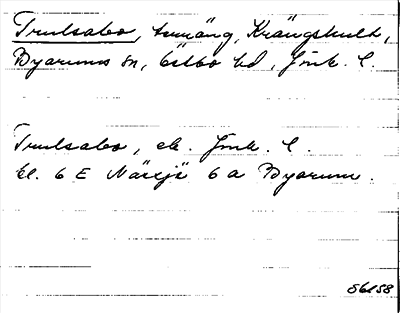 Trulsabo, terräng, Krängshult,
Byarums sn, Östbo hd, Jönk. l.
Trulsabo, ek. Jönk. l.
bl. 6 E Nässjö 6 a Byarum.